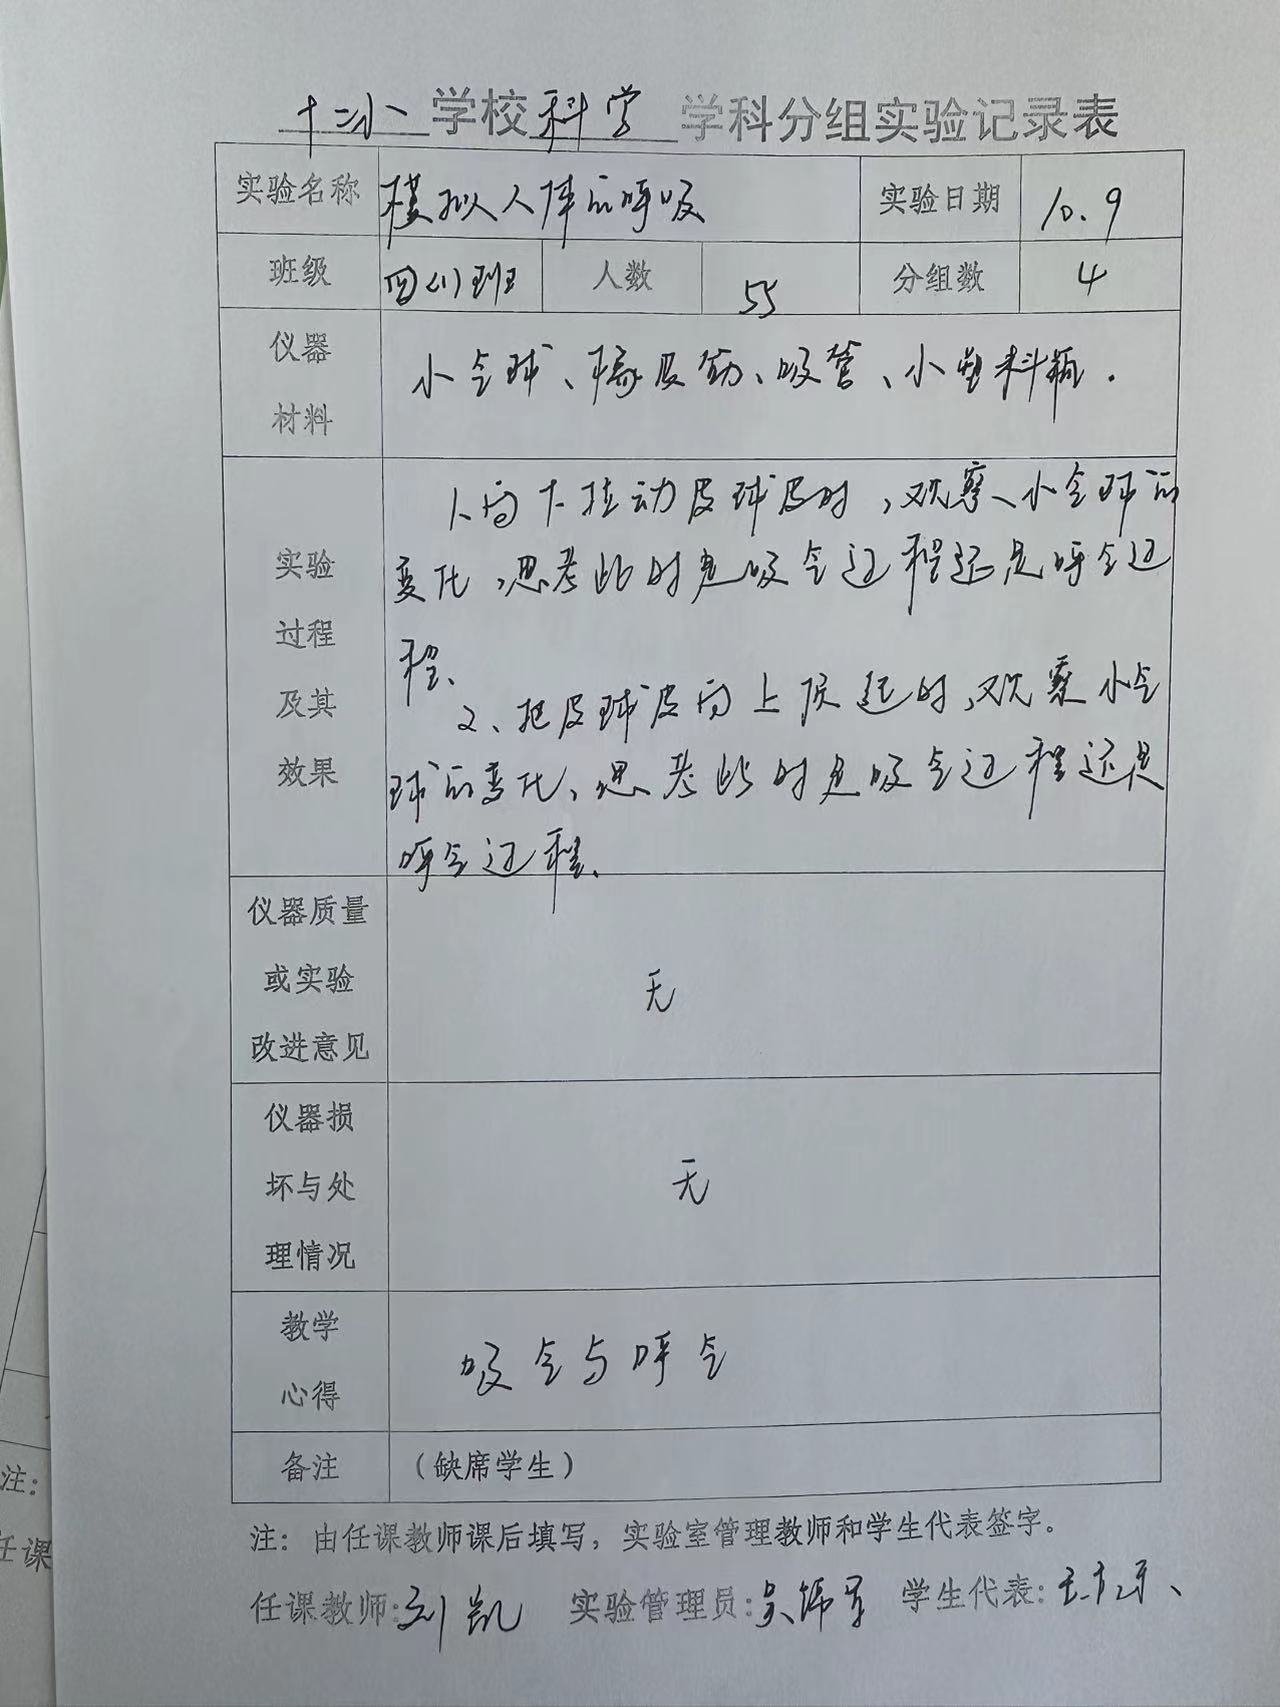 十二小学校科学学科分组实验记录表
实验名称 模拟人体的呼吸 实验日期 10.9
班级 四(1)班 人数 55 分组数 4
仪器
材料
小气球、橡皮筋、吸管、小塑料瓶.
实验
过程
及其
效果
1、向下拉动皮球皮时,观察小气球的
变化,思考此时是吸气过程还是呼气过
程、
2、把皮球皮向上顶起时,观察小气
球的变化,思考此时是吸气过程还是
呼气过程、
仪器质量
或实验
改进意见
无
仪器损
坏与处
理情况
无
教学
心得
吸气与呼气
备注 (缺席学生)
注:由任课教师课后填写,实验室管理教师和学生代表签字。
任课教师:刘凯 实验管理员:吴 学生代表:
注:
任课